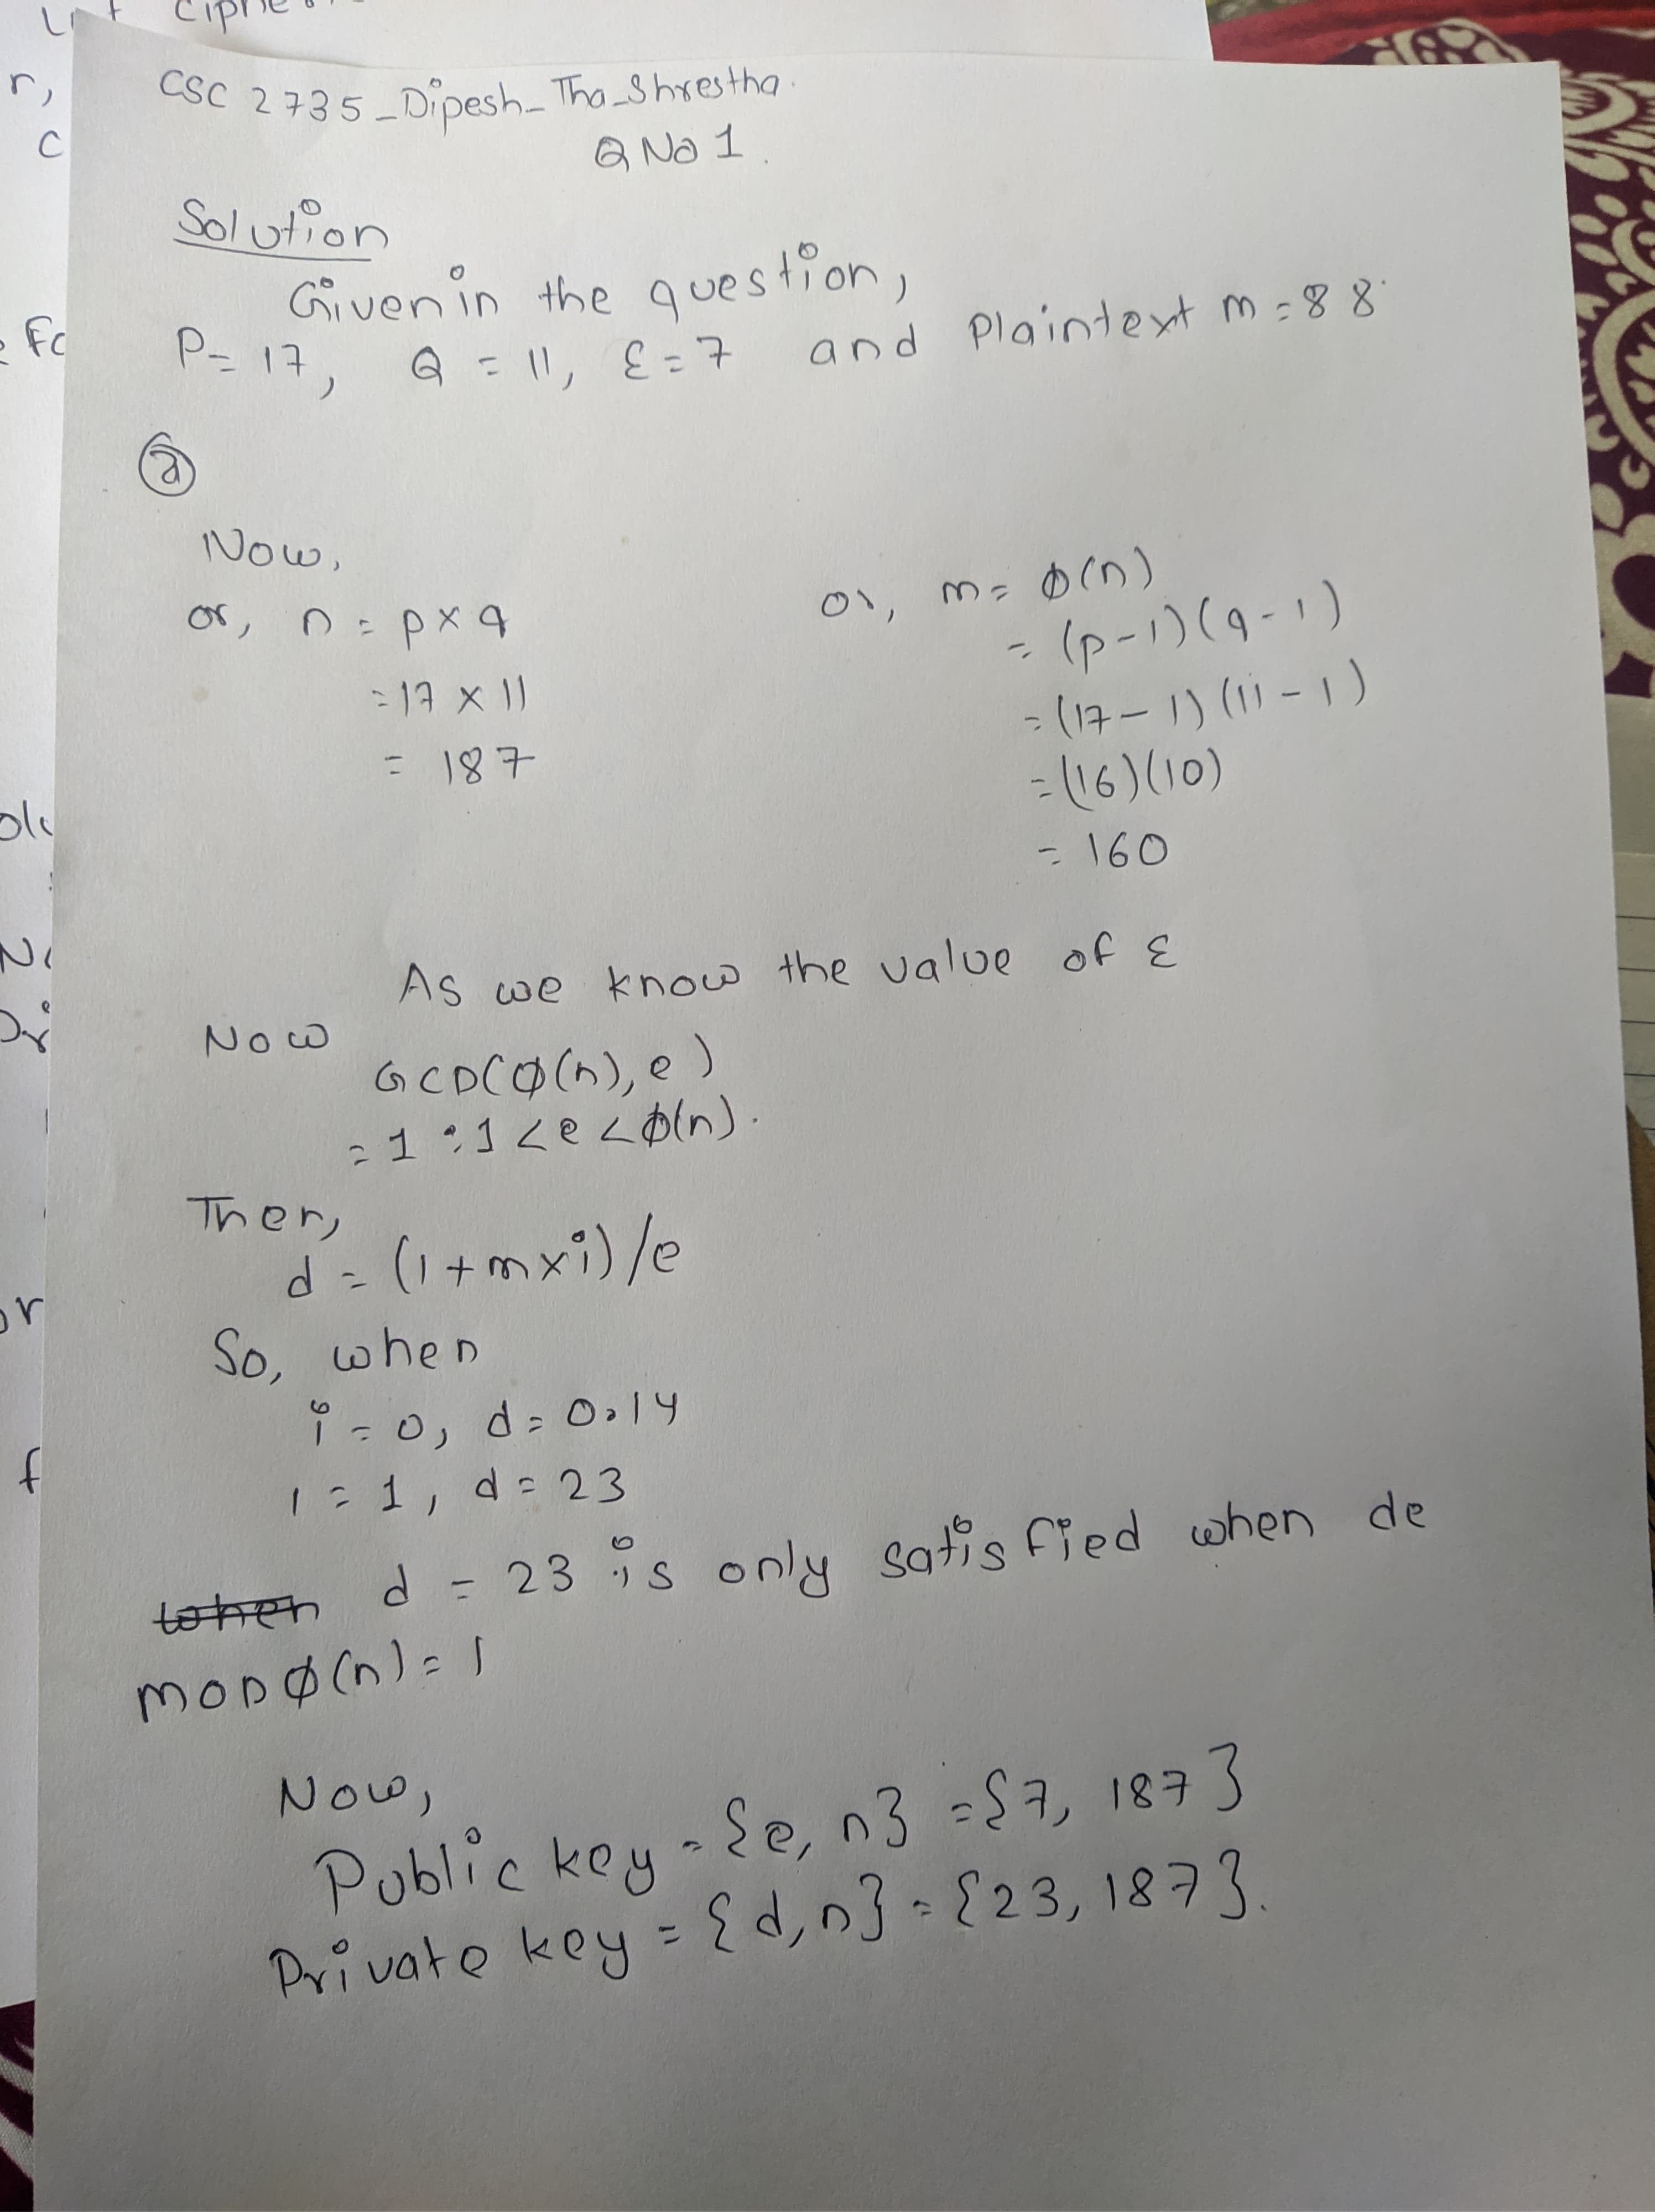 CSC 2735_Dipesh_Tha_Shrestha.
Q No 1.
Solution
Given in the question,
P = 17, Q = 11, ε = 7 and Plaintext m = 88.
ⓐ
Now,
or, n = p × q
= 17 × 11
= 187
or, m = ϕ(n)
= (p-1)(q-1)
= (17-1)(11-1)
= (16)(10)
= 160
As we know the value of ε
Now
GCD(ϕ(n), e)
= 1 : 1 < e < ϕ(n).
Then,
d = (1+m×i)/e
So, when
i = 0, d = 0.14
i = 1, d = 23
when d = 23 is only satisfied when de
MOD ϕ(n) = 1
Now,
Public key = {e, n} = {7, 187}
Private key = {d, n} = {23, 187}.